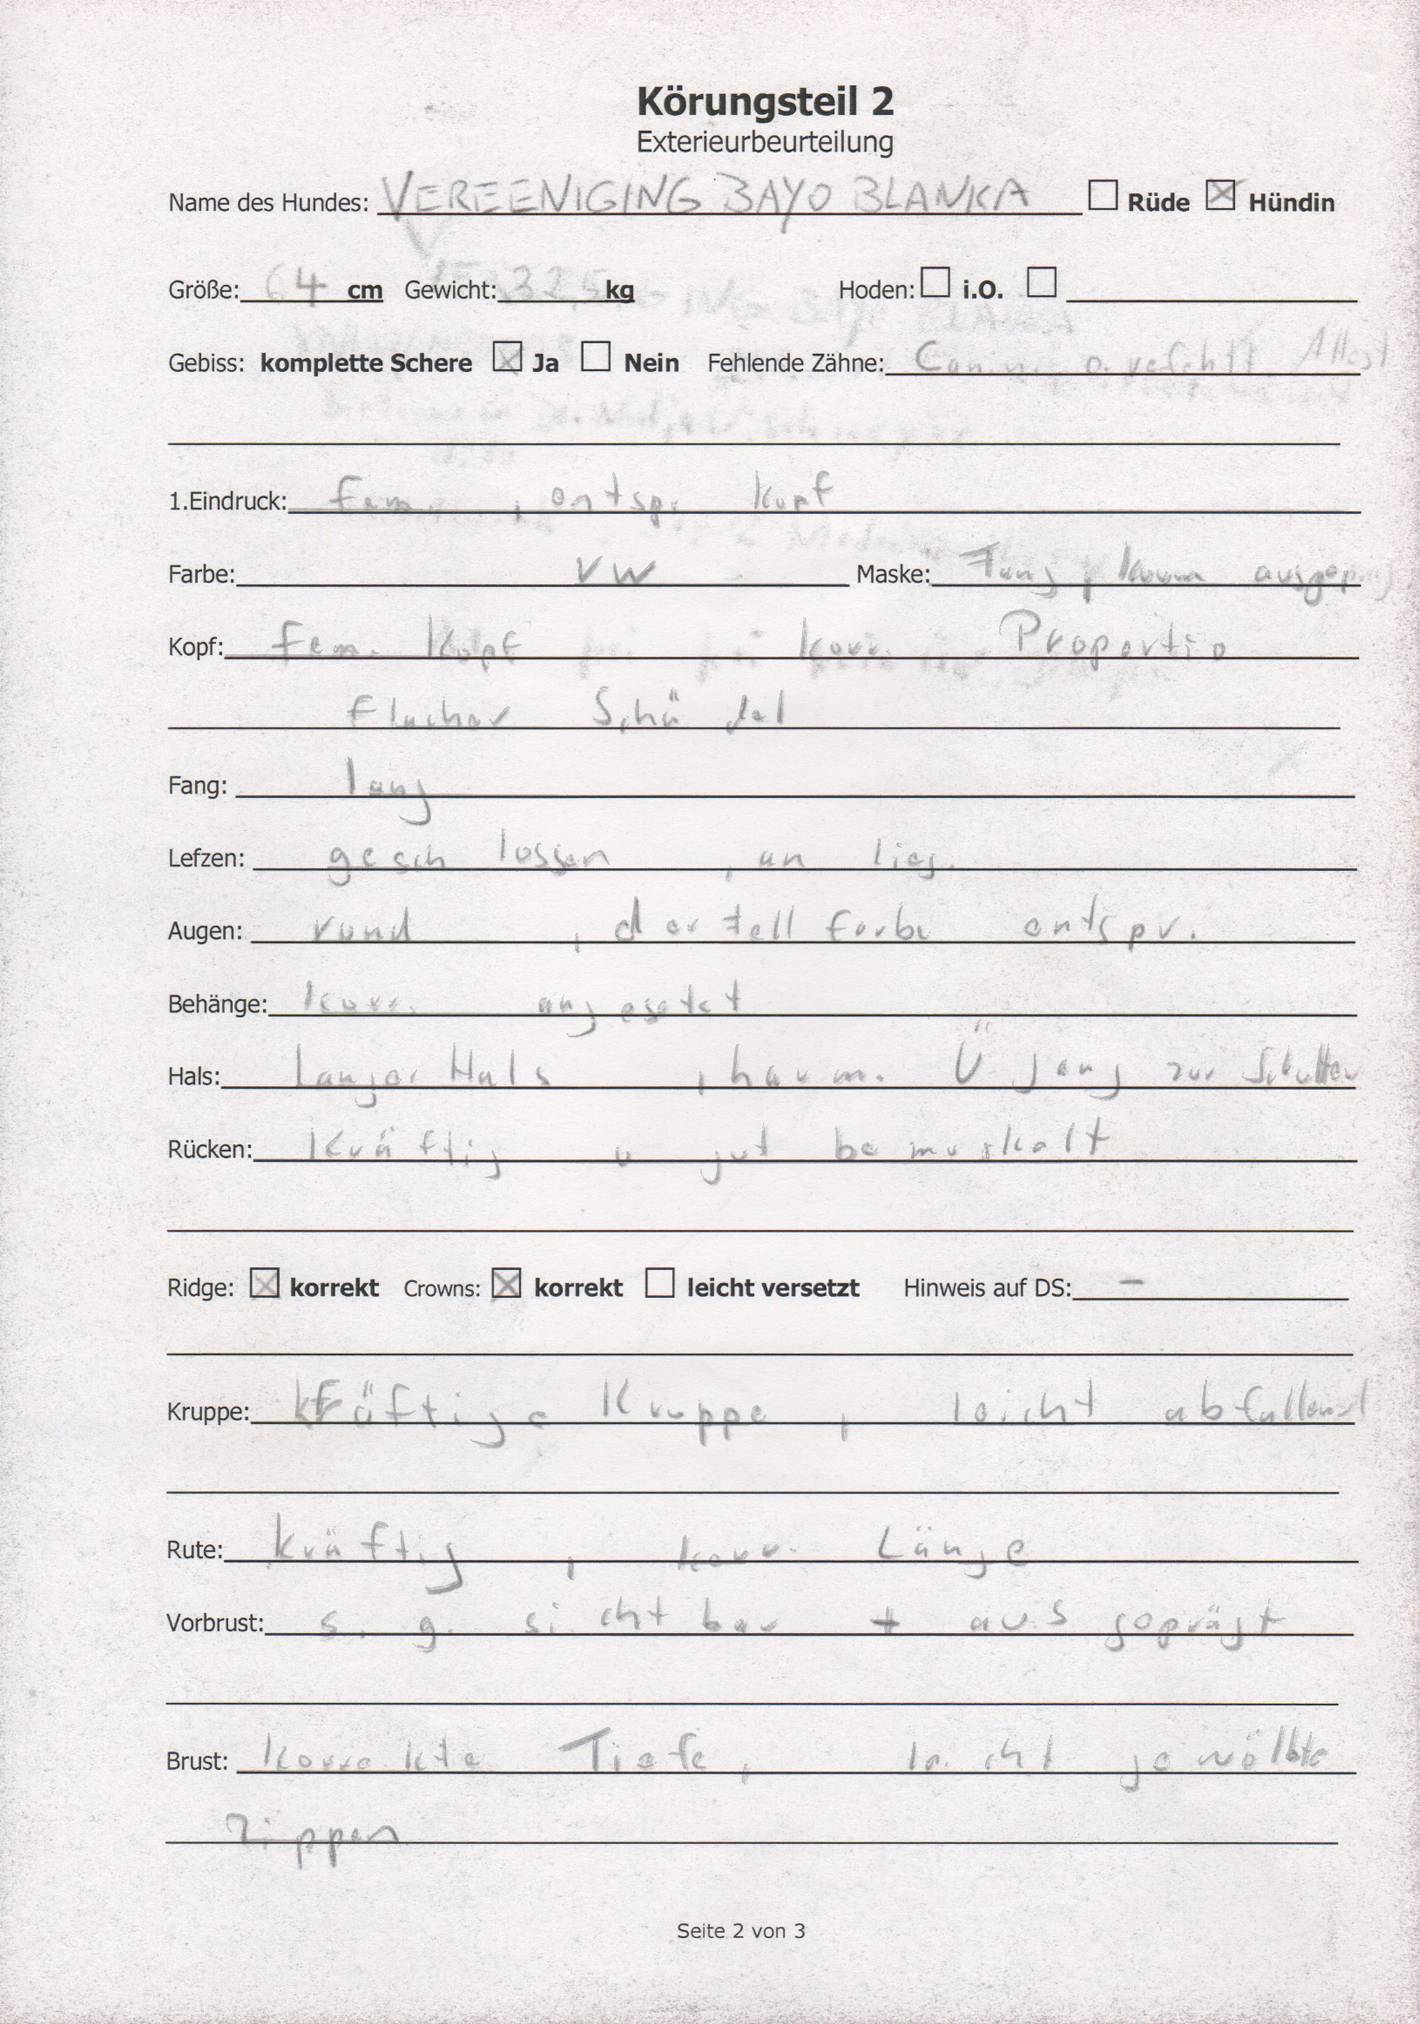 Körungsteil 2
Exterieurbeurteilung
Name des Hundes: VEREENIGING BAYO BLANKA ☐ Rüde ☒ Hündin
Größe: 64 cm Gewicht: 32,5 kg Hoden: ☐ i.O. ☐
Gebiss: komplette Schere ☒ Ja ☐ Nein Fehlende Zähne: Attest
1.Eindruck: fem. , entsp. Kopf
Farbe: rw Maske: Fang, kaum
Kopf: fem. Kopf korr. Proportio
flacher Schädel
Fang: lang
Lefzen: geschlossen , an lieg.
Augen: rund , der Fellfarbe entspr.
Behänge: korr. angesetzt
Hals: langer Hals , harm. Ü gang zur Schulter
Rücken: kräftig u gut bemuskelt
Ridge: ☒ korrekt Crowns: ☒ korrekt ☐ leicht versetzt Hinweis auf DS: –
Kruppe: kräftige Kruppe , leicht abfallend
Rute: kräftig , korr. Länge
Vorbrust: s. g. sichtbar + ausgeprägt
Brust: korrekte Tiefe, leicht gewölbte
Rippen
Seite 2 von 3